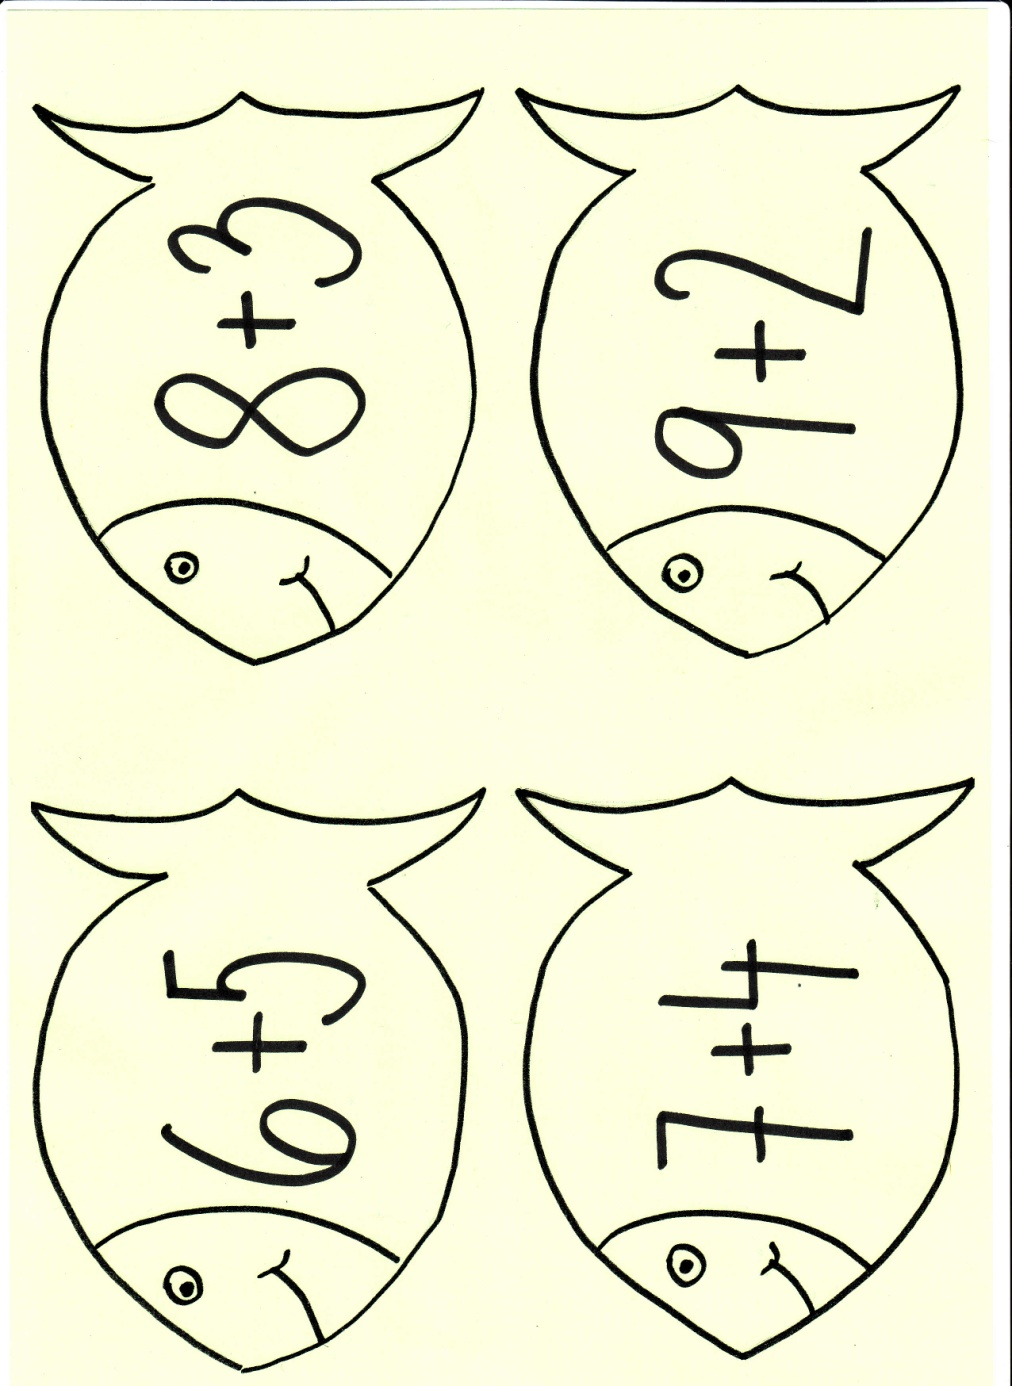 8+3
9+2
6+5
7+4